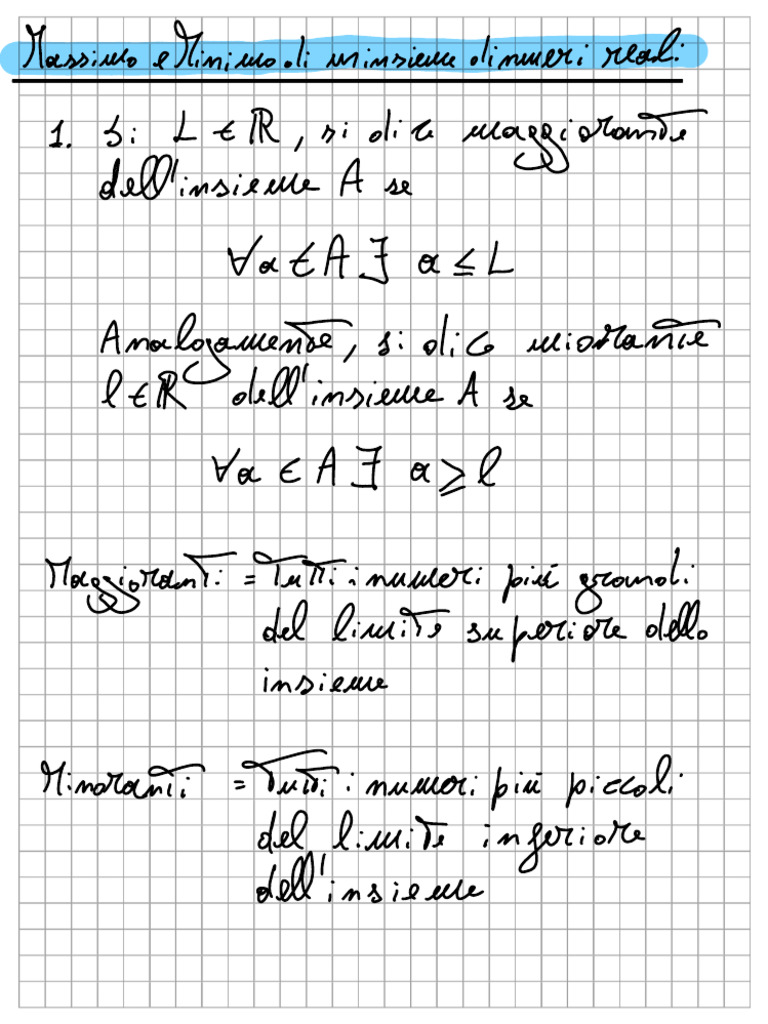 Massimo e Minimo di un insieme di numeri reali
1. Si L ∈ ℝ, si dice maggiorante
dell'insieme A se
∀a ∈ A ∃ a ≤ L
Analogamente, si dice miorante
l ∈ ℝ dell'insieme A se
∀a ∈ A ∃ a ≥ l
Maggioranti = Tutti i numeri più grandi
del limite superiore dello
insieme
Minoranti = Tutti i numeri più piccoli
del limite inferiore
dell'insieme